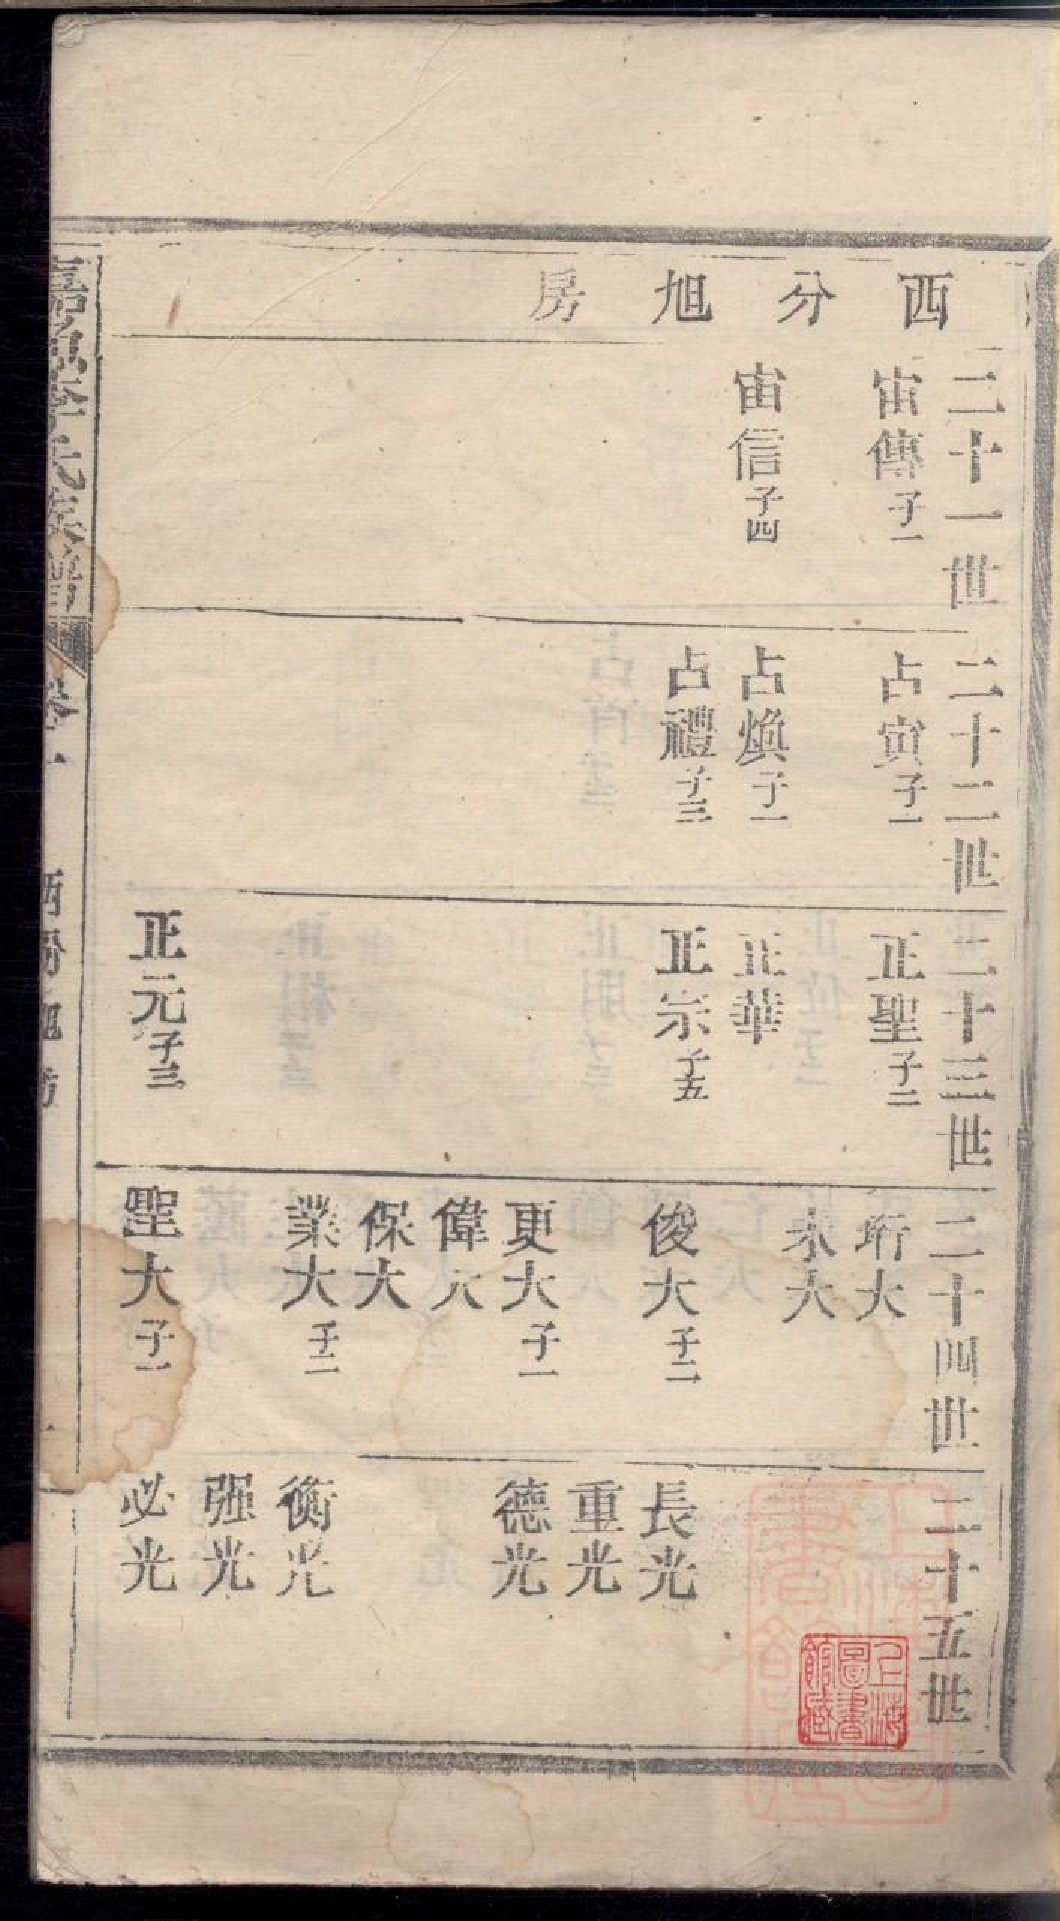 西分旭房
二十一世
宙傳子一
宙信子四
二十二世
占寅子一
占煥子一
占禮子三
二十三世
正聖子二
正華
正宗子五
正元子三
二十四世
珩大
未大
俊大子二
更大子一
偉大
保大
業大子二
聖大子一
二十五世
長光
重光
德光
衡光
强光
必光
嘉魚李氏族譜
卷一
西分旭房
上海圖書館藏